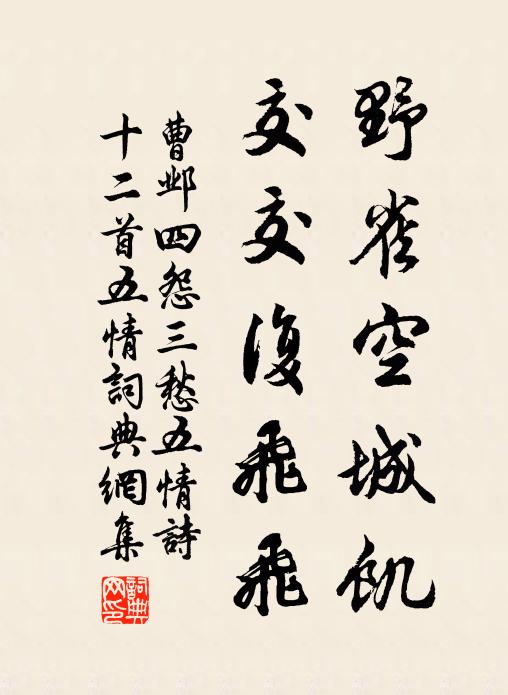 野雀空城飢
交交復飛飛
曹邺四怨三愁五情詩
十二首五情詞典網集
詞典網印